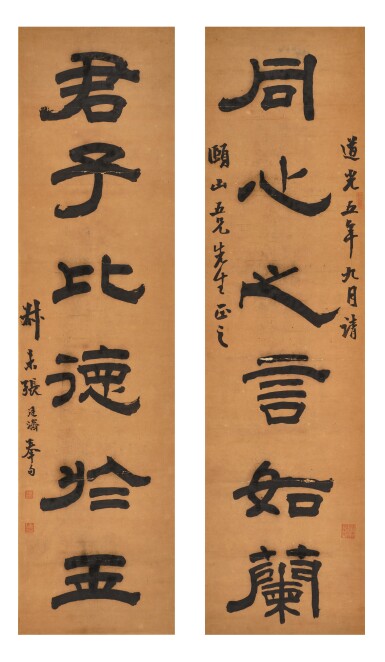 道光五年九月請
同心之言如蘭
頤山五兄先生正之
君子比德於玉
叔未張廷濟奉句